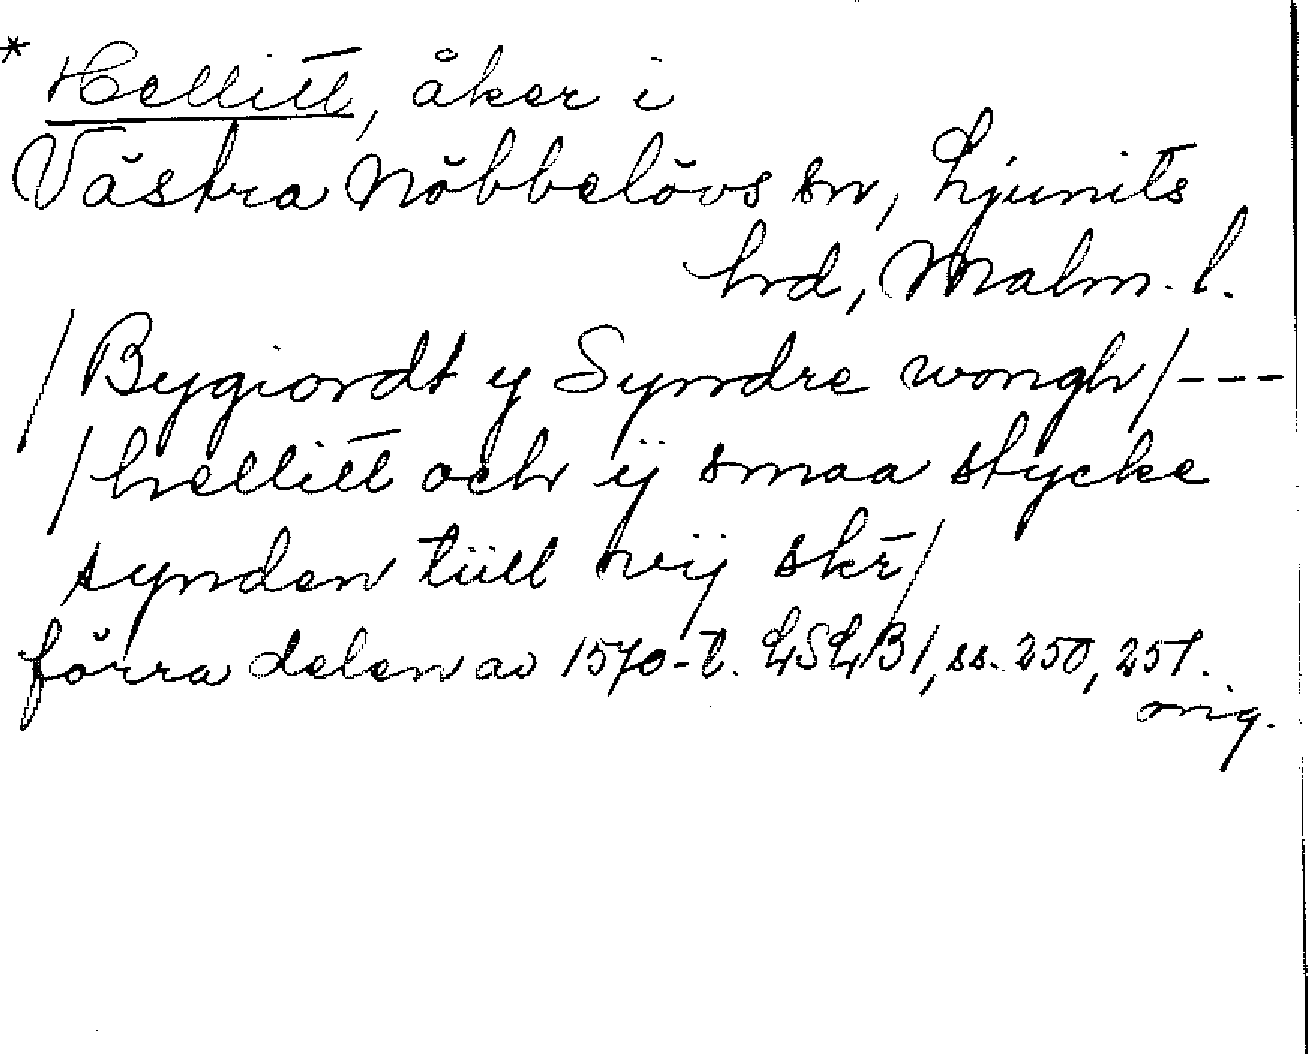 * Hellitt, åker i
Västra Nöbbelövs sn, Ljunits
hrd, Malm. l.
/Bygiordt y Syndre wongh/---
/hellitt och ij smaa stycke
synden tiill vij skr/
förra delen av 1570-t. LSLB1, ss. 250, 251.
orig.